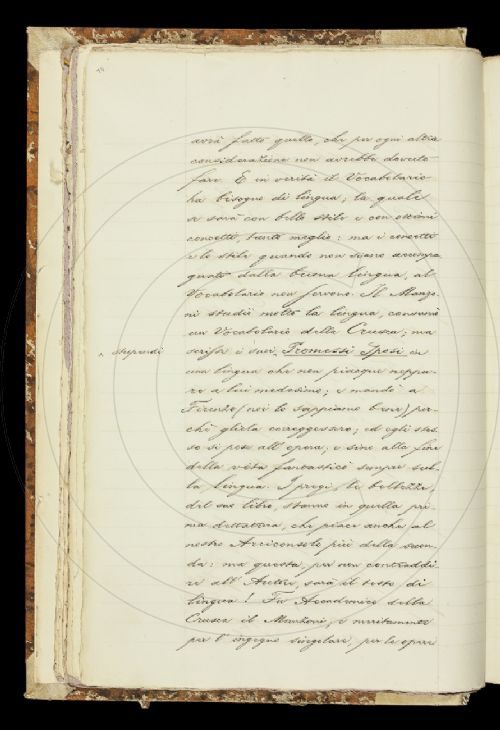 avrà fatto quello, che per ogni altra
considerazione non avrebbe dovuto
fare. E in verità il Vocabolario
ha bisogno di lingua; la quale
se sarà con bello stile e con ottimi
concetti, tanto meglio: ma i concetti
e lo stile quando non siano accompa
gnati dalla buona lingua, al
Vocabolario non servono. Il Manzo-
ni studiò molto la lingua, consumò
un Vocabolario della Crusca; ma
stupendi
scrisse i suoi Promessi Sposi in
una lingua che non piacque neppu-
re a lui medesimo; e mandò a
Firenze (noi lo sappiamo bene) per-
chè gliela correggessero; ed egli stes-
so si pose all'opera, e sino alla fine
della vita fantasticò sempre sul-
la lingua. I pregi, le bellezze,
del suo libro, stanno in quella pri-
ma dettatura, che piace anche al
nostro Arciconsolo più della secon-
da: ma questa, per non contraddi-
re all'Autore, sarà il testo di
lingua! Fu Accademico della
Crusca il , e meritamente
per l'ingegno singolare, per le opere